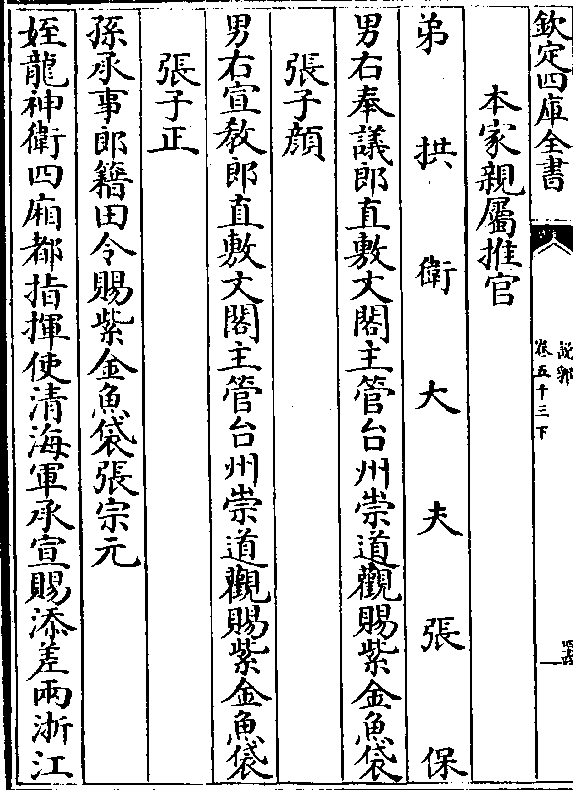 欽定四庫全書
說郛
卷五十三下
本家親屬推官
弟拱衛大夫張保
男右奉議郎直敷文閣主管台州崇道觀賜紫金魚袋
張子顔
男右宣教郎直敷文閣主管台州崇道觀賜紫金魚袋
張子正
孫承事郎籍田令賜紫金魚袋張宗元
姪龍神衛四廂都指揮使清海軍承宣賜添差兩浙江